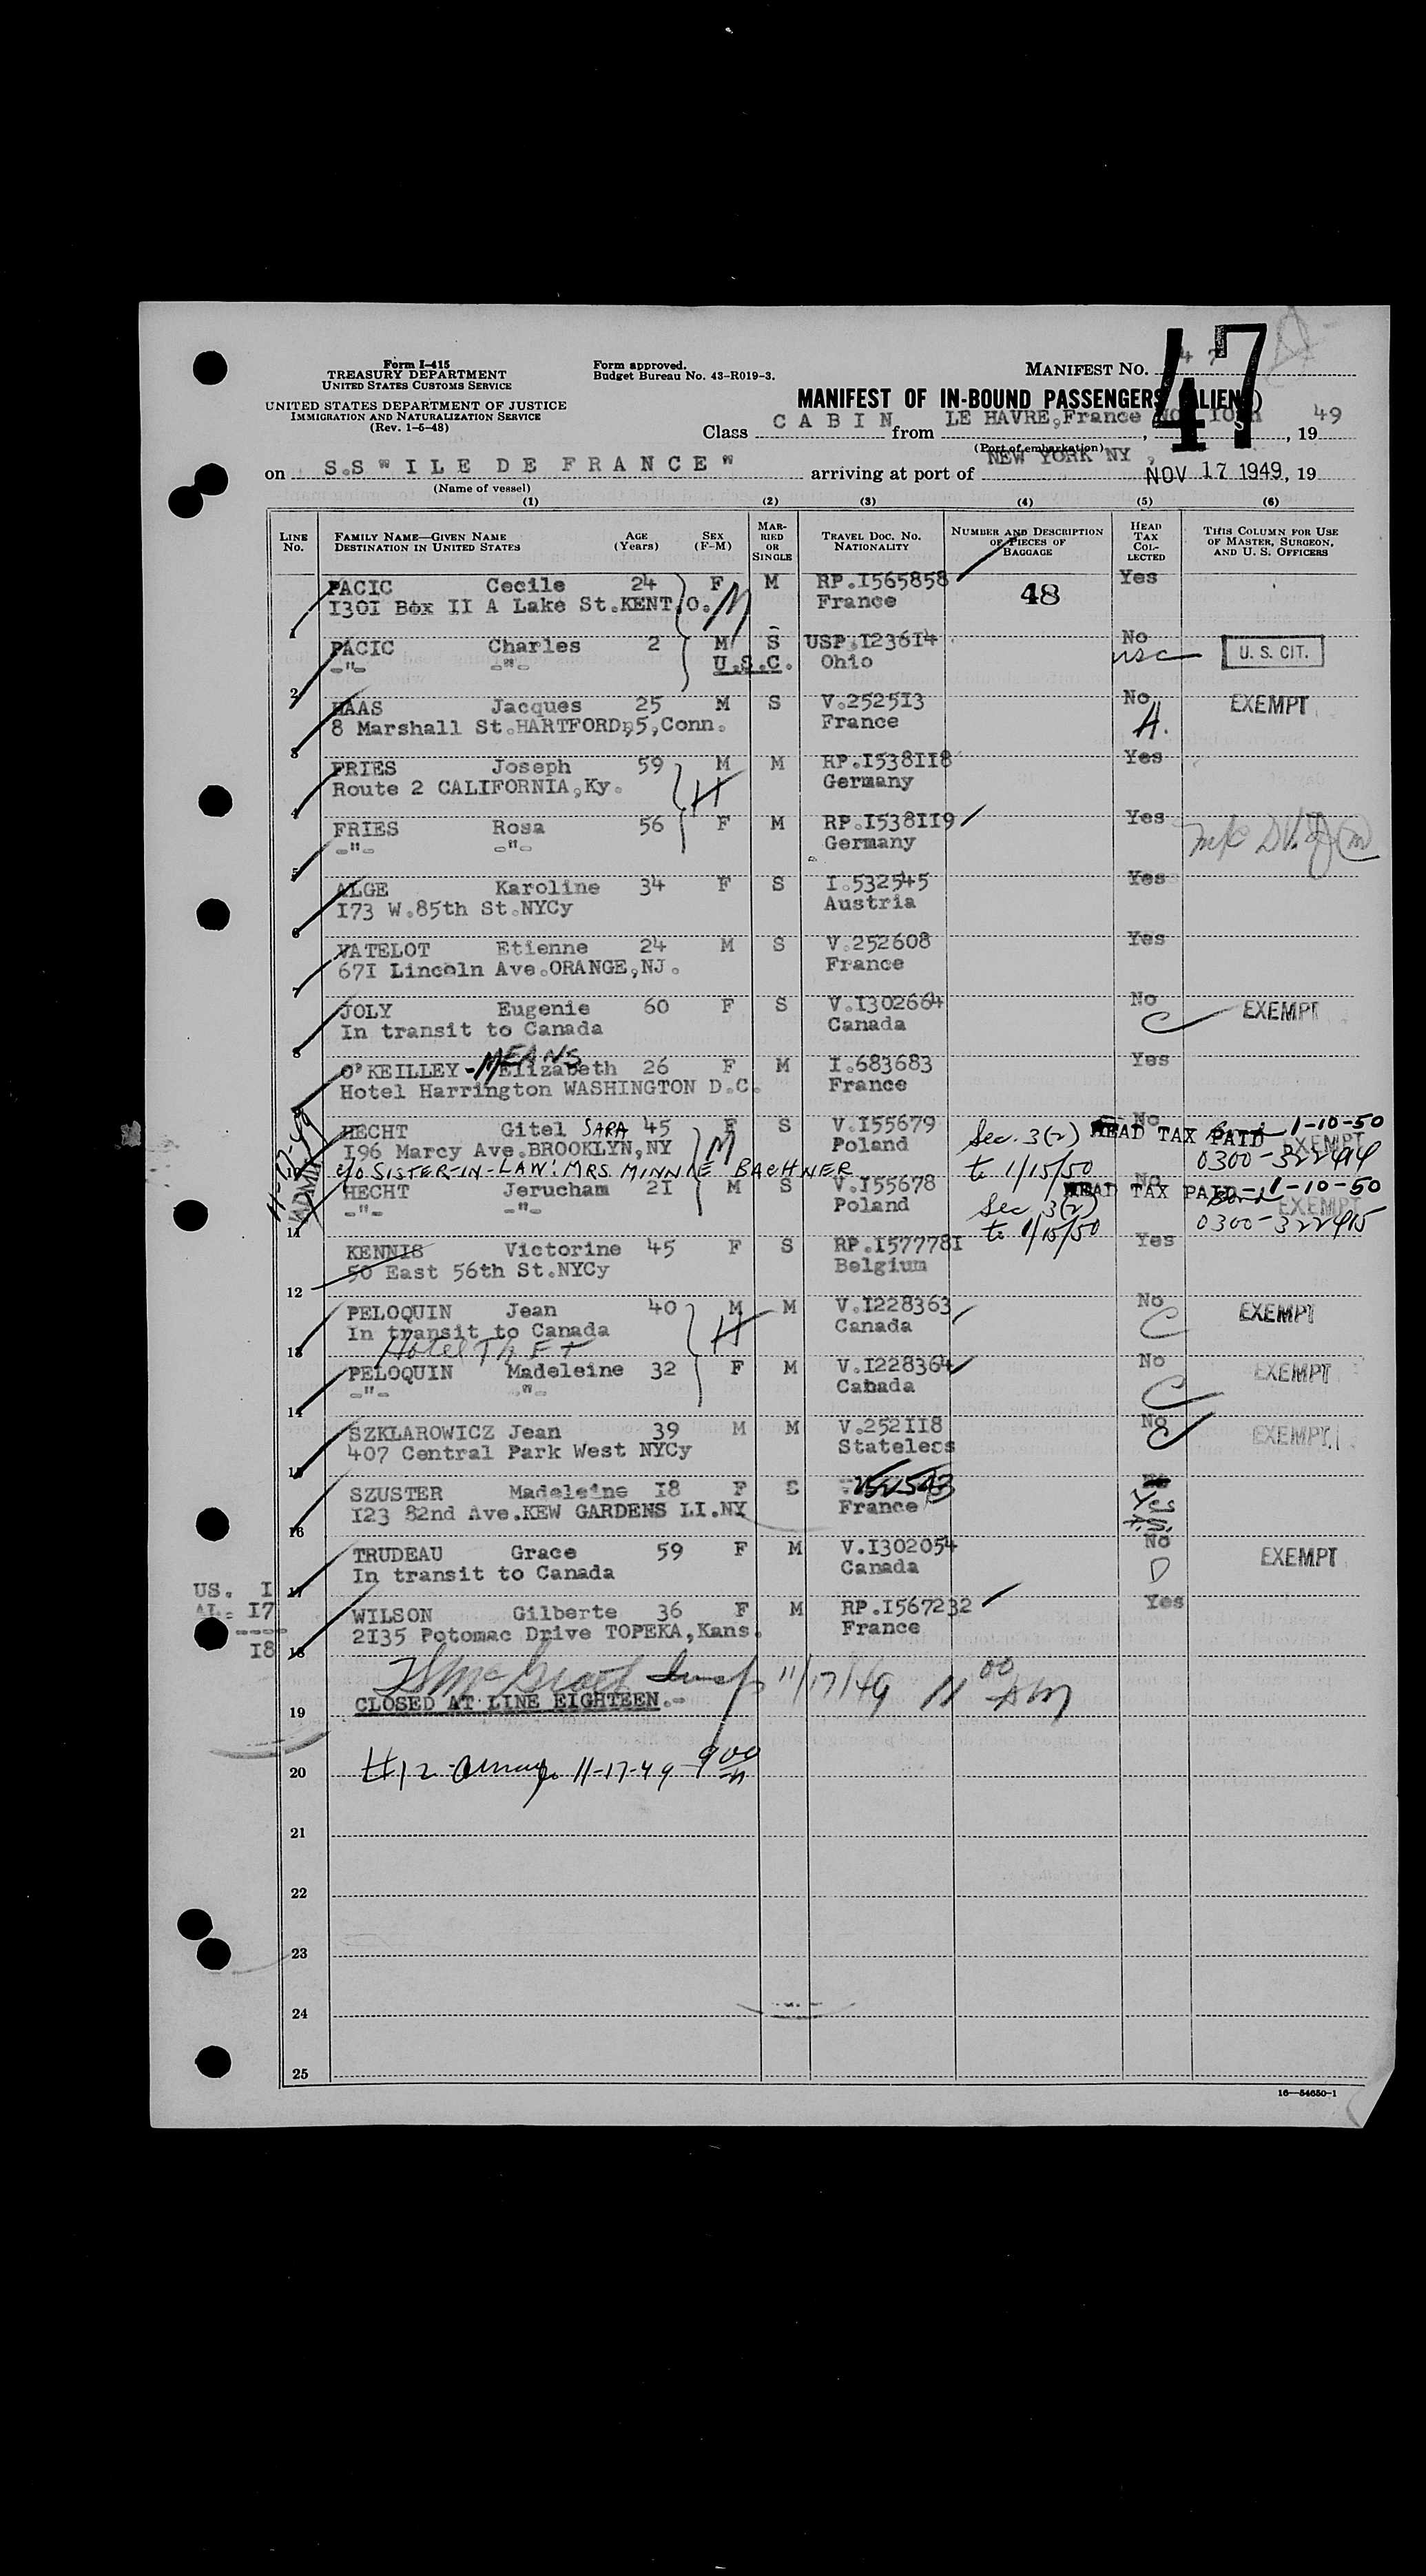 Form I-415
TREASURY DEPARTMENT
UNITED STATES CUSTOMS SERVICE
UNITED STATES DEPARTMENT OF JUSTICE
IMMIGRATION AND NATURALIZATION SERVICE
(Rev. 1-5-48)
Form approved.
Budget Bureau No. 43-R019-3.
MANIFEST No. 47
47
MANIFEST OF IN-BOUND PASSENGERS (ALIENS)
Class CABIN from LE HAVRE, France, 19 49
(Port of embarkation)
on S.S "ILE DE FRANCE" arriving at port of NEW YORK NY, NOV 17 1949, 19
(Name of vessel)
(1) (2) (3) (4) (5) (6)
LINE No. FAMILY NAME—GIVEN NAME DESTINATION IN UNITED STATES AGE (Years) SEX (F-M) MARRIED OR SINGLE TRAVEL DOC. NO. NATIONALITY NUMBER AND DESCRIPTION OF PIECES OF BAGGAGE HEAD TAX COLLECTED THIS COLUMN FOR USE OF MASTER, SURGEON, AND U. S. OFFICERS
PACIC Cecile 24 F M RP.I565858 48 Yes
1 I30I Box II A Lake St.KENT,O. M France
PACIC Charles 2 M S USP.I236I4 No
2 -"- -"- U.S.C. Ohio usc U. S. CIT.
HAAS Jacques 25 M S V.2525I3 No EXEMPT
3 8 Marshall St.HARTFORD,5,Conn. France H.
FRIES Joseph 59 M M RP.I538II8 Yes
4 Route 2 CALIFORNIA,Ky. H Germany
FRIES Rosa 56 F M RP.I538II9 Yes
5 -"- -"- Germany
ALGE Karoline 34 F S I.532545 Yes
6 I73 W.85th St.NYCy Austria
VATELOT Etienne 24 M S V.252608 Yes
7 67I Lincoln Ave.ORANGE,NJ. France
JOLY Eugenie 60 F S V.I302664 No EXEMPT
8 In transit to Canada Canada C
MEANS
O'KEILLEY- Elizabeth 26 F M I.683683 Yes
9 Hotel Harrington WASHINGTON D.C. France
HECHT Gitel SARA 45 F S V.I55679 Sec. 3(2) No HEAD TAX PAID 1-10-50 EXEMPT
I96 Marcy Ave.BROOKLYN,NY M Poland to 1/15/50 0300-322414
c/o SISTER-IN-LAW: MRS. MINNIE BACHNER
HECHT Jerucham 2I M S V.I55678 No HEAD TAX PAID 1-10-50 EXEMPT
11 -"- -"- Poland Sec 3(2) to 1/15/50 0300-322415
ADMIT
KENNIS Victorine 45 F S RP.I57778I Yes
12 50 East 56th St.NYCy Belgium
PELOQUIN Jean 40 M M V.I228363 No EXEMPT
13 In transit to Canada H Canada C
Hotel Taft
PELOQUIN Madeleine 32 F M V.I228364 No EXEMPT
14 -"- -"- Canada C
SZKLAROWICZ Jean 39 M M V.252II8 No EXEMPT
15 407 Central Park West NYCy Stateless C
SZUSTER Madeleine I8 F S
16 I23 82nd Ave.KEW GARDENS LI.NY France Yes
TRUDEAU Grace 59 F M V.I302054 No EXEMPT
17 In transit to Canada Canada
US. I
AL. I7
----
I8
WILSON Gilberte 36 F M RP.I567232 Yes
18 2I35 Potomac Drive TOPEKA,Kans. France
11/17/49 11 00 AM
19 CLOSED AT LINE EIGHTEEN.-
20 11-17-49 9 00
21
22
23
24
25
16—54650-1